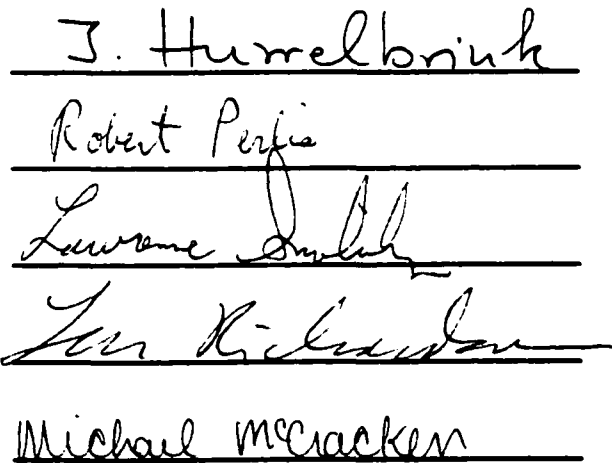 J. Hurrelbrink
Robert Perlis
Lawrence Smolinsky
Len Richardson
Michael McCracken